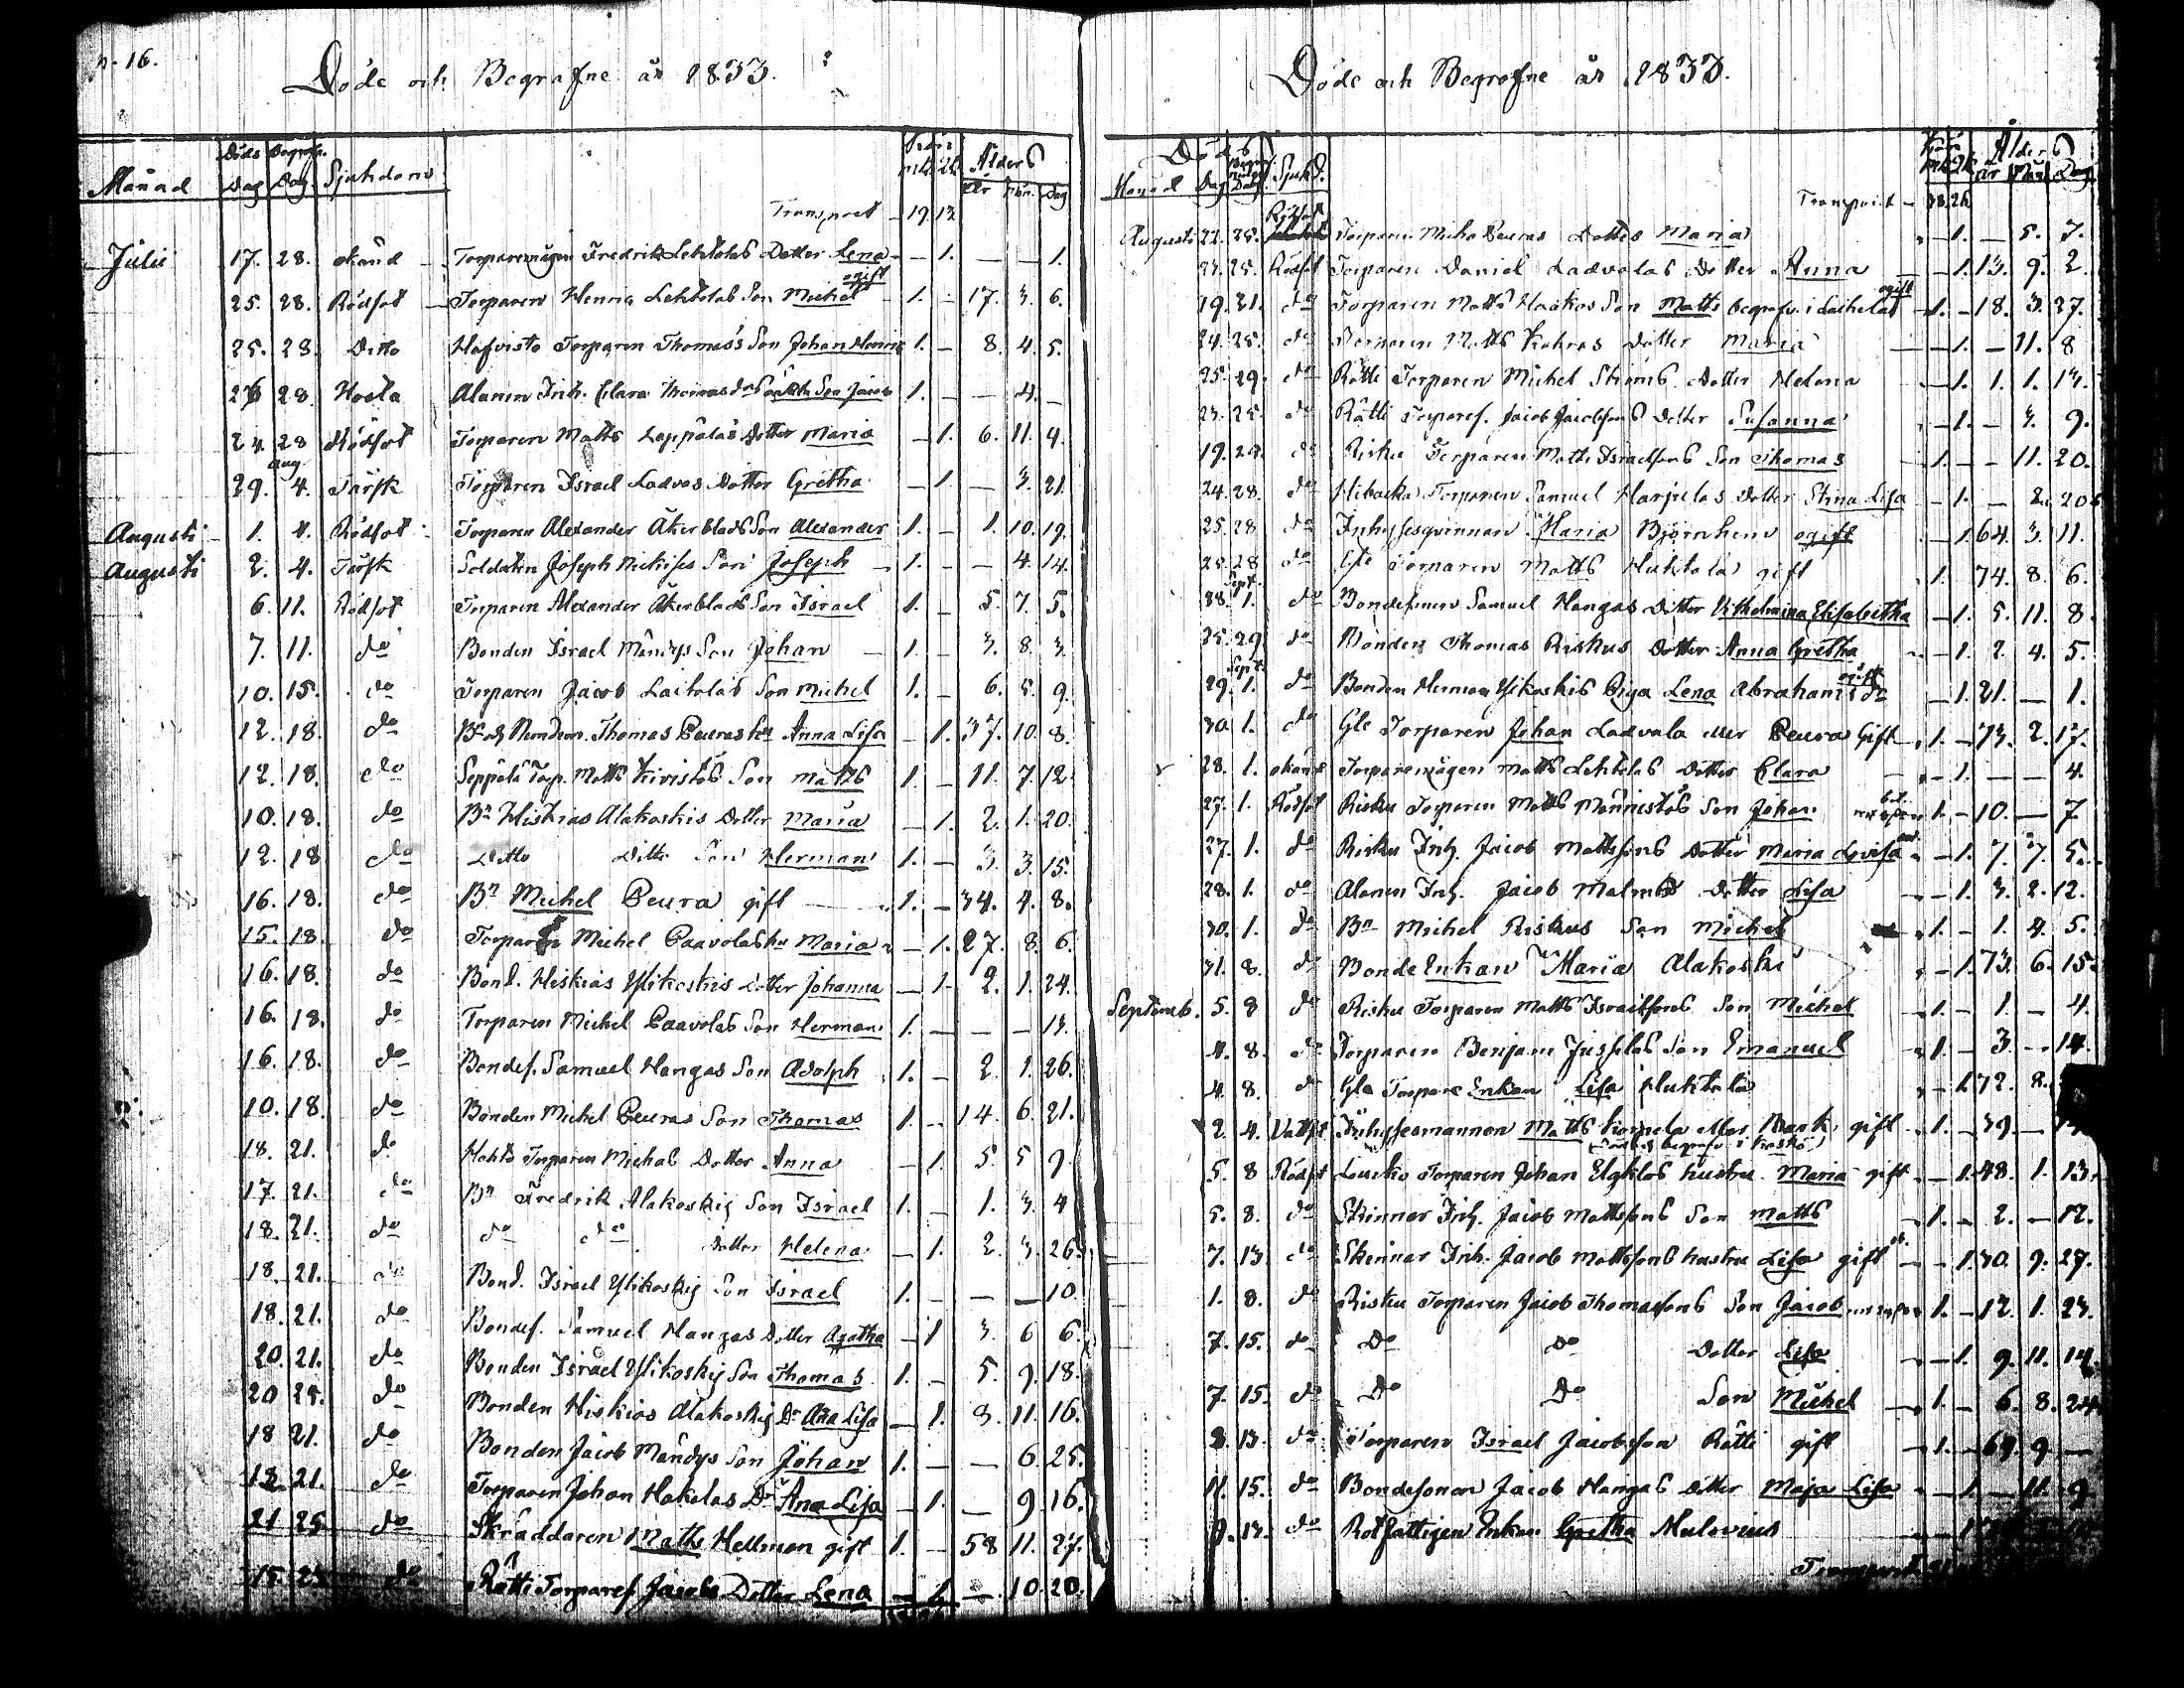 p. 16.
Döde och Begrafne år 1833.
Månad Döds Dag Begrafn. Dag. Sjukdoms Ålders
År Mån. Dag
Transport - 19. 13.
Julii 17. 28. okänd Torparemågen Fredrik Lehtolas Dotter Lena - 1. - - 1.
25. 28. Rödsot Torparen Henric Lehtolas Son Michel ogift 1. - 17. 3. 6.
25. 28. Ditto Hafvisto Torparen Thomas's Son Johan Henric 1. - 8. 4. 5.
26 28. Hosta Alanen Inh. Clara Thomasd:rs Son Jacob 1. - - 4. -
24. 28 Rödsot Torparen Matts Leppälas Dotter Maria - 1. 6. 11. 4.
29. Aug. 4. Torsk Torparen Israel Ladvas Dotter Gretha - 1. - 3. 21.
Augusti 1. 4. Rödsot Torparen Alexander Åkerblads Son Alexander 1. - 1. 10. 19.
Augusti 2. 4. Torsk Soldaten Joseph Son Joseph 1. - - 4. 14.
6. 11. Rödsot Torparen Alexander Åkerblads Son Israel 1. - 5. 7. 5.
7. 11. do Bonden Israel Måndys Son Johan 1. - 3. 8. 3.
10. 15. do Torparen Jacob Laitolas Son Michel 1. - 6. 5. 9.
12. 18. do Thomas Peuras hu Anna Lisa - 1. 37. 10. 8.
12. 18. do Seppälä Torp. Matts Kivistös Son Matts 1. - 11. 7. 12
10. 18. do Bn Hiskias Alakoskis Dotter Maria - 1. 2. 1. 20.
12. 18 do Ditto Ditto Son Herman 1. - 3. 3. 15.
16. 18. do Bn Michel Peura gift 1. - 34. 4. 8.
15. 18. do Torparen Michel Paavolas hu Maria - 1. 27. 8. 6.
16. 18. do Bond. Hiskias Ylikoskis Dotter Johanna - 1. 2. 1. 24.
16. 18. do Torparen Michel Paavolas Son Herman 1. - - - 13.
16. 18. do Bondes. Samuel Hangas Son Adolph 1. - 2. 1. 26.
10. 18. do Bonden Michel Peuras Son Thomas 1. - 14. 6. 21.
18. 21. do Torparen Michels Dotter Anna - 1. 5. 5 9.
17. 21. do Bn Fredrik Alakoskis Son Israel 1. - 1. 3. 4
18. 21. do do do Dotter Helena - 1. 2. 3. 26.
18. 21. do Bond. Israel Ylikoskis Son Israel 1. - - - 10.
18. 21. do Bondes. Samuel Hangas Dotter Agatha - 1 3. 6 6.
20. 21. do Bonden Israel Ylikoskis Son Thomas 1. - 5. 9. 18.
20 25. do Bonden Hiskias Alakoskis Dr Ana Lisa - 1. 8. 11. 16.
18 21. do Bonden Jacob Måndys Son Johan 1. - - 6. 25.
18. 21. do Torparen Johan Hakelas Dr Ana Lisa - 1. - 9. 16.
21 25 do Skräddaren Matts Hellman gift 1. - 58 11. 27.
15. 25 do Rätti Torpares Jacobs Dotter Lena - 1. - 10. 20.
Döde och Begrafne år 1833.
Döds Ålders
Månad Dag Begraf. Dag Sjukd. År Mån. Dag
Transport -
Augusti 22. 25. Rödsot Torparen Michel Peuras Dotter Maria - 1. - 5. 7.
23. 25. Rödsot Torparen Daniel Ladvalas Dotter Anna - 1. 13. 9. 2.
19. 21. do Torparen Matts Haskos Son Matts begrafv. i ogift 1. - 18. 3. 27.
24. 25. do Torparen Matts Dotter Maria - 1. - 11. 8
25. 29. do Rätti Torparen Michel Ströms Dotter Helena - 1. 1. 1. 13.
23. 25. do Rätti Torpares. Jacob Jacobsons Dotter Susanna - 1. - 3. 9.
19. 24. do Risku Torparen Matts Israelsons Son Thomas 1. - - 11. 20.
24. 28. do Torparen Samuel Harjulas Dotter Stina Lisa - 1. - 2. 20.
25. 28 do Inhysesqvinnan Maria Björnhem ogift - 1. 64. 3. 11.
25. 28 do Gle Torparen Matts Huhtala gift 1. 74. 8. 6.
28. Sept. 1. do Bondesonen Samuel Hangas Dotter Vilhelmina Elisabetha - 1. 5. 11. 8.
25. 29. do Bonden Thomas Riskus Dotter Anna Gretha - 1. 2. 4. 5.
29. Sept. 1. do Bonden Herman Ylikoskis Piga Lena Abrahamsdr ogift - 1. 21. - 1.
30. 1. do Gle Torparen Johan Ladvala eller Peura Gift 1. - 73. 2. 17.
28. 1. okänd Torparemågen Matts Lehtolas Dotter Clara - 1. - - 4.
27. 1. Rödsot Risku Torparen Matts Männistös Son Johan 1. - 10. - 7
27. 1. do Risku Inh. Jacob Mattsons Dotter Maria Lovisa - 1. 7. 7. 5.
28. 1. do Alanen Inh. Jacob Malmbs Dotter Lisa - 1. 3. 2. 12.
30. 1. do Bn Michel Riskus Son Michel 1. - 1. 4. 5.
31. 8. do BondeEnkan Maria Alakoski - 1. 73. 6. 15.
Septemb. 5. 8 do Risku Torparen Matts Israelsons Son Michel 1. - 1. - 4.
4. 8. do Torparen Benjam Jusselas Son Emanuel 1. - 3. - 14.
4. 8. do Gla Torpare Enkan Lisa Huhtala - 1. 72. 8.
2. 4. Vattst Inhysesmannen Matts Korpela eller Mark gift 1. - 39. -
5. 8 Rödst Lusko Torparen Johan Elgklos hustru Maria gift - 1. 48. 1. 13.
5. 8. do Skinnar Inh. Jacob Mattsons Son Matts 1. - 2. - 12.
7. 13. do Skinnar Inh. Jacob Mattsons hustru Lisa gift - 1. 30. 9. 27.
1. 8. do Risku Torparen Jacob Thomassons Son Jacob 1. - 12. 1. 23.
7. 15. do Do Do Dotter Lisa - 1. 9. 11. 14.
7. 15. do Do Do Son Michel 1. - 6. 8. 24
8. 13. do Torparen Israel Jacobsson Rätti gift 1. - 69. 9. -
11. 15. do Bondesonen Jacob Hangas Dotter Maja Lisa - 1. - 11. 9
9. 13. do Rotfattigen Enkan Gretha Mulovius - 1.
Transport